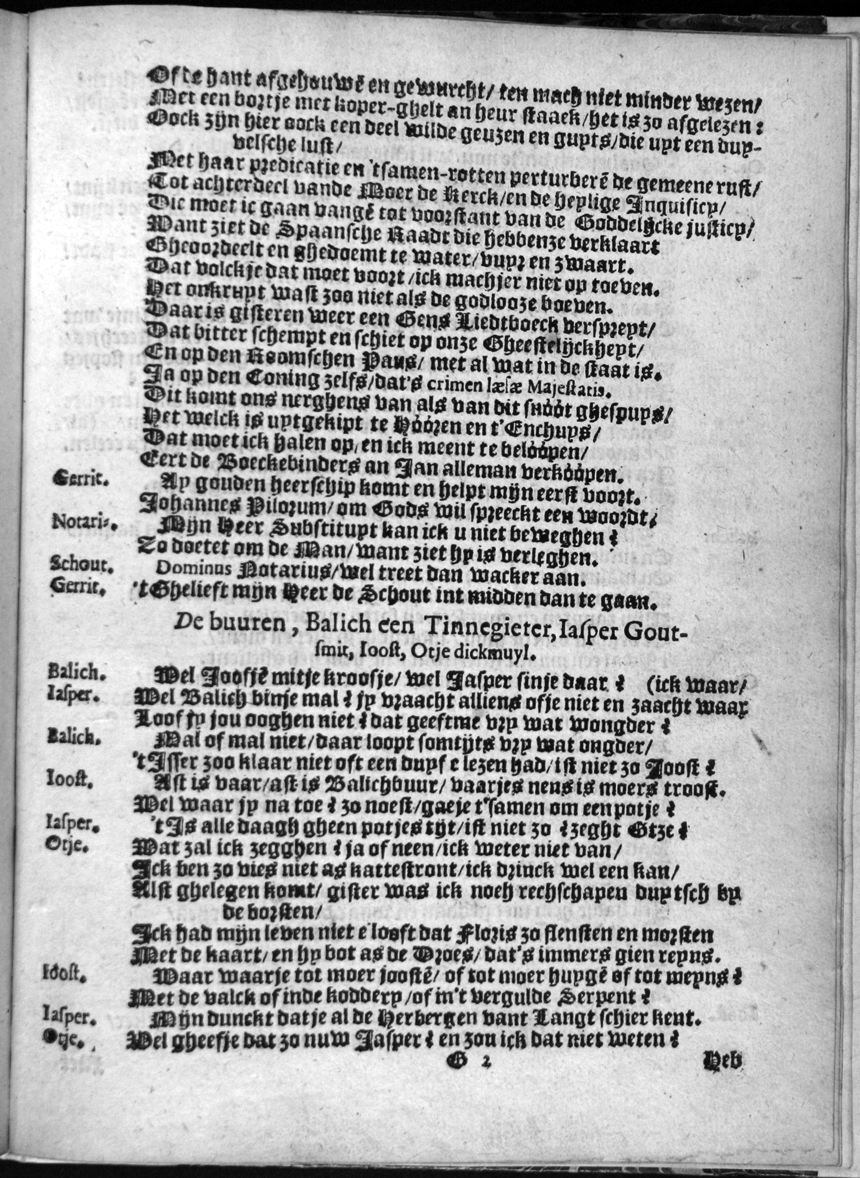 Ofte hant afgehouwē en gewurcht/ ten mach niet minder wezen/
Met een bortje met koper-ghelt an heur staack/het is zo afgelezen:
Oock zijn hier oock een deel wilde geuzen en guyts/die uyt een duy-
velsche lust/
Met haar predicatie en 'tsamen-rotten perturberē de gemeene rust/
Tot achterdeel vande Moer de Kerck/en de heylige Inquisicy/
Die moet ic gaan vangē tot voorstant van de Goddelijcke justicy/
Want ziet de Spaansche Raadt die hebbenze verklaart
Gheoordeelt en ghedoemt te water/vuyr en zwaart.
Dat volckje dat moet voort/ick machjer niet op toeven.
Het onkruyt wast zoo niet als de godlooze boeven.
Daar is gisteren weer een Gens Liedtboeck verspreyt/
Dat bitter schempt en schiet op onze Gheestelijckheyt/
En op den Roomschen Paus/ met al wat in de staat is.
Ja op den Coning zelfs/dat's crimen læsæ Majestatis.
Dit komt ons nerghens van als van dit snóót ghespuys/
Het welck is uytgekipt te Hóóren en t'Enchuys/
Dat moet ick halen op, en ick meent te belóópen/
Eert de Boeckebinders an Jan alleman verkóópen.
Gerrit. Ay gouden heerschip komt en helpt mijn eerst voort.
Johannes Pilorum/om Gods wil spreeckt een woordt;
Notaris. Mijn Heer Substituyt kan ick u niet beweghen?
Zo doetet om de Man/want ziet hy is verleghen.
Schout. Dominus Notarius/wel treet dan wacker aan.
Gerrit. 'tGhelieft mijn Heer de Schout int midden dan te gaan.
De buuren, Balich een Tinnegieter, Iasper Gout-
smit, Ioost, Otje dickmuyl.
Balich. Wel Joosjē mitje kroosje/ wel Jasper sinje daar? (ick waar/
Iasper. Wel Balich binje mal? jy vraacht alliens ofje niet en zaacht waar
Loof jy jou ooghen niet? dat geeftme vry wat wongder?
Balich. Mal of mal niet/daar loopt somtijts vry wat ongder/
't Isser zoo klaar niet oft een duyf e lezen had/ist niet zo Joost?
Ioost. Ast is vaar/ast is Balichbuur/vaarjes nens is moers troost.
Wel waar jy na toe? zo noest/gaeje t'samen om een potje?
Iasper. 't Is alle daagh gheen potjes tijt/ist niet zo? zeght Otze?
Otje. Wat zal ick zegghen? ja of neen/ick weter niet van/
Ick ben zo vies niet as kattestront/ick drinck wel een kan/
Alst ghelegen komt/ gister was ick noch rechschapen duytsch by
de borsten/
Ick had mijn leven niet e looft dat Floris zo flensten en morsten
Met de kaart/en hy bot as de Droes/dat's immers gien reyns.
Ioost. Waar waarje tot moer joostē/ of tot moer huygē of tot meyns?
Met de valck of inde koddery/of in't vergulde Serpent?
Iasper. Mijn dunckt datje al de Herbergen vant Langt schier kent.
Otje. Wel gheefje dat zo nuw Jasper? en zou ick dat niet weten?
G 2 Heb